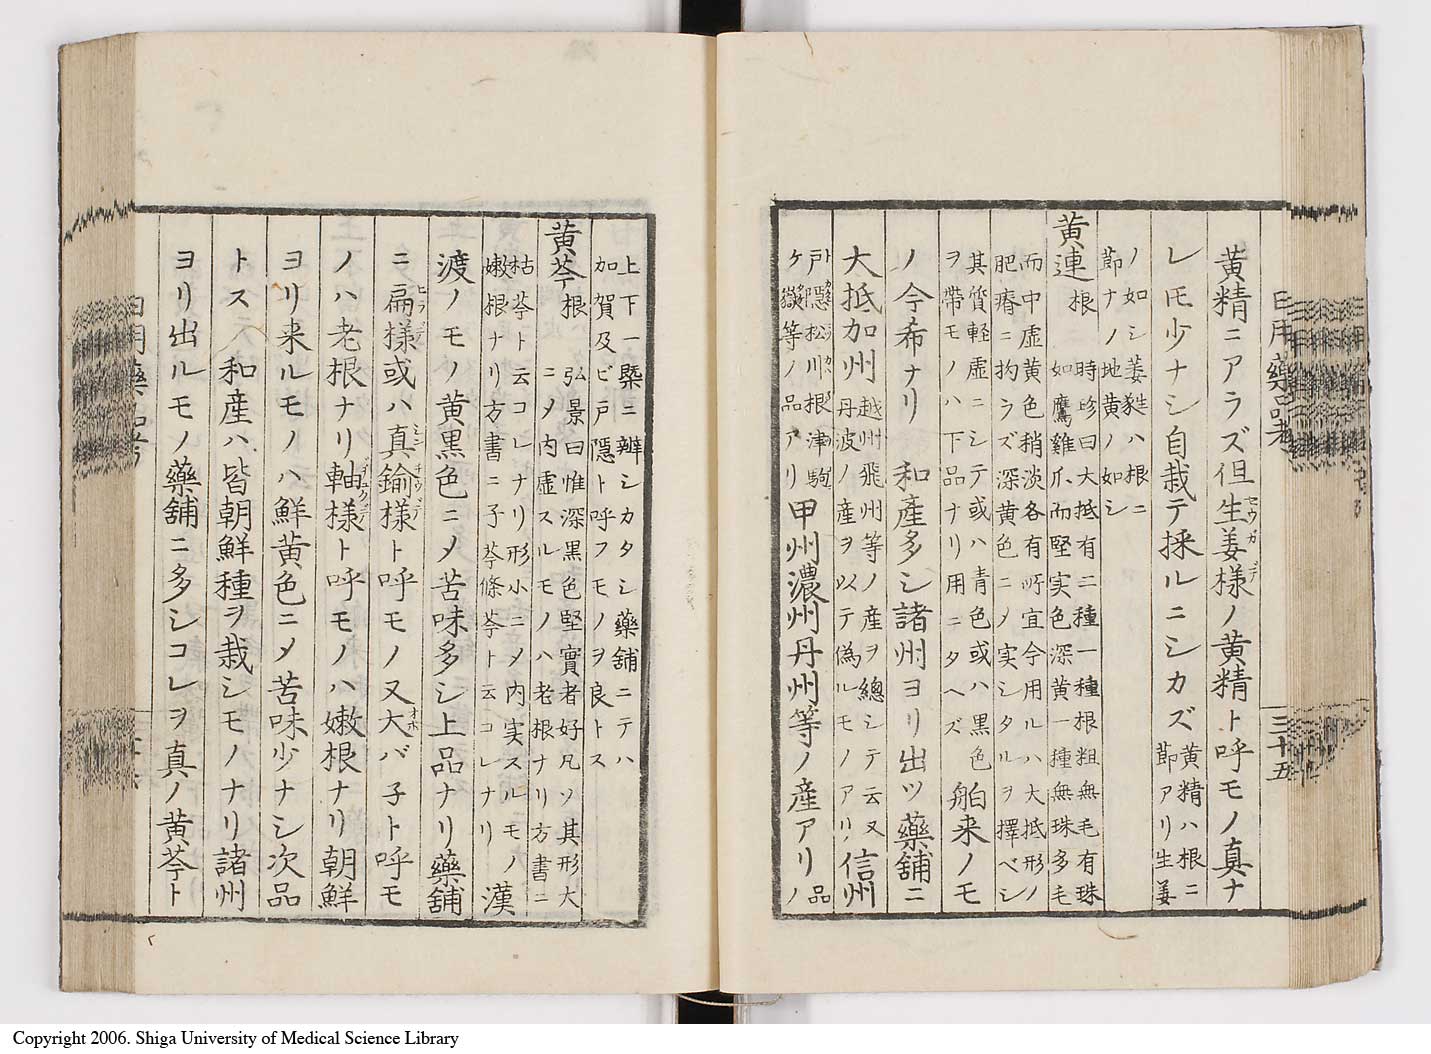 日用藥品考
三十五
黄精ニアラズ但生姜様ノ黄精ト呼モノ真ナ
レモ少ナシ自栽テ採ルニシカズ黄精ハ根ニ節アリ生姜
ノ如シ萎蕤ハ根ニ節ナノ地黄ノ如シ
黄連根 時珍曰大抵有二種一種根粗無毛有珠
如鷹雞爪而堅実色深黄一種無珠多毛
而中虚黄色稍淡各有所宜今用ルハ大抵形ノ
肥瘠ニ拘ラズ深黄色ニメ実シタルヲ擇ベシ
其質軽虚ニシテ或ハ青色或ハ黒色
ヲ帯モノハ下品ナリ用ニタヘズ
舶来ノモ
ノ今希ナリ 和産多シ諸州ヨリ出ツ藥舗ニ
大抵加州越州飛州等ノ産ヲ總シテ云又
丹波ノ産ヲ以テ偽ルモノアリ
信州
戸隠松川根津駒
ケ嶽等ノ品アリ
甲州濃州丹州等ノ産アリ品ノ
上下一槩ニ辨シカタシ藥舗ニテハ
加賀及ビ戸隠ト呼フモノヲ良トス
黄芩根 弘景曰惟深黒色堅實者好凡ソ其形大
ニメ内虚スルモノハ老根ナリ方書ニ
枯芩ト云コレナリ形小ニメ内実スルモノ
嫩根ナリ方書ニ子芩條芩ト云コレナリ
漢
渡ノモノ黄黒色ニメ苦味多シ上品ナリ藥舗
ニ扁様或ハ真鍮様ト呼モノ又大バ子ト呼モ
ノハ老根ナリ軸様ト呼モノハ嫩根ナリ朝鮮
ヨリ来ルモノハ鮮黄色ニメ苦味少ナシ次品
トス 和産ハ皆朝鮮種ヲ栽シモノナリ諸州
ヨリ出ルモノ藥舗ニ多シコレヲ真ノ黄芩ト
日用藥品考
Copyright 2006. Shiga University of Medical Science Library